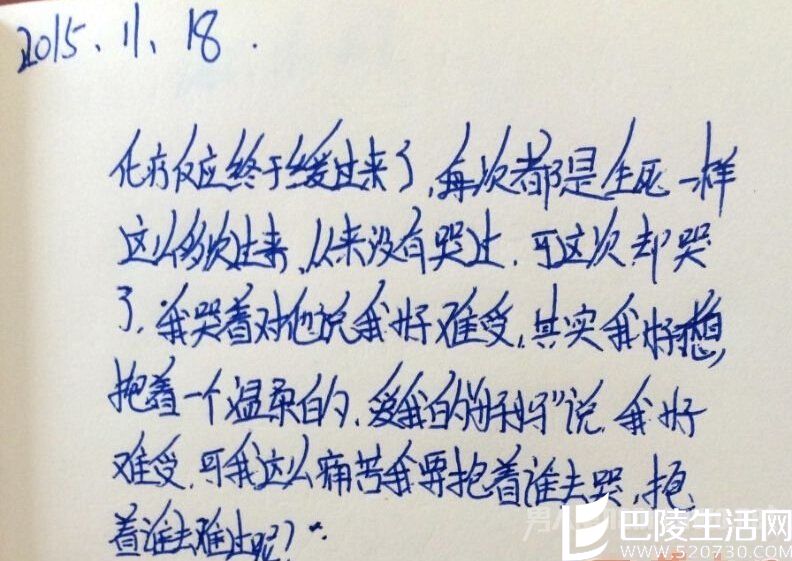 2015.11.18.
化疗反应终于缓过来了,每次都是生死一样
这么多次过来,从来没有哭过,可这次却哭
了,我哭着对他说我好难受,其实我好想,
抱着一个温柔的,爱我的"妈妈"说,我好
难受,可我这么痛苦我要抱着谁去哭,抱
着谁去难过呢?..
巴陵生活网
www.520730.com